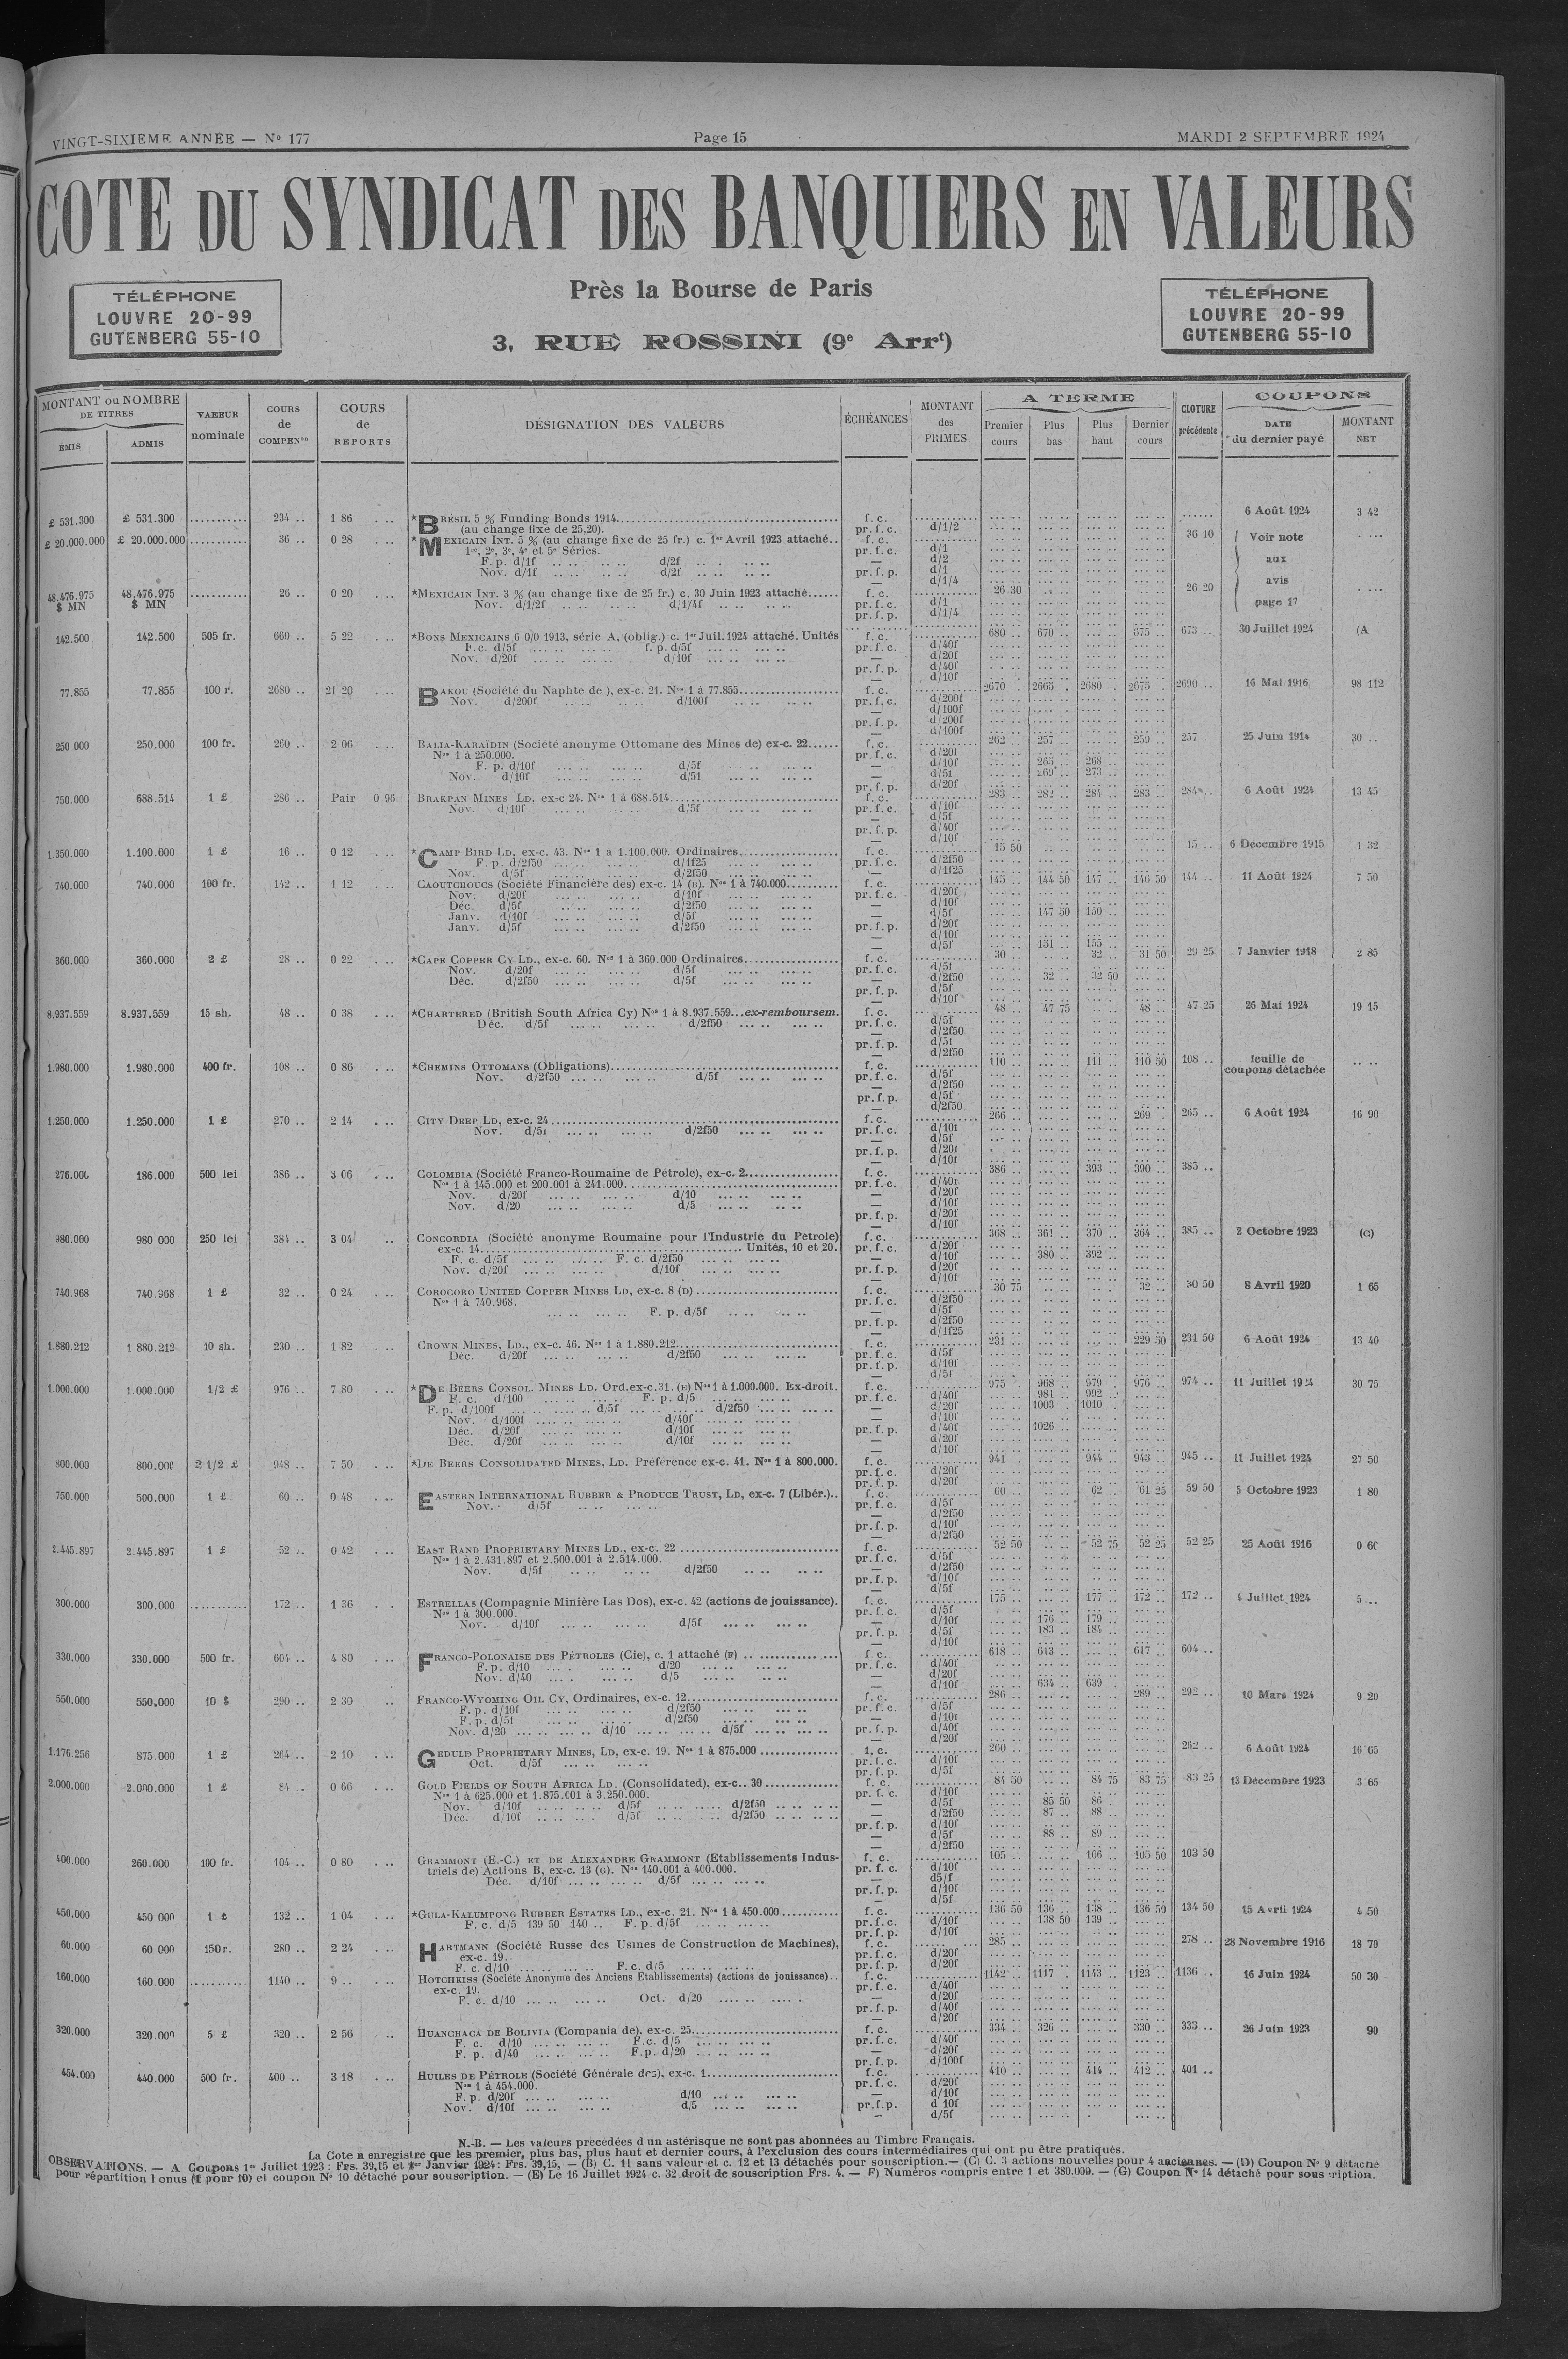 VINGT-SIXIEME ANNÉE — No 177 Page 15 MARDI 2 SEPTEMBRE 1924
COTE DU SYNDICAT DES BANQUIERS EN VALEURS
Près la Bourse de Paris
TÉLÉPHONE
LOUVRE 20-99
GUTENBERG 55-10
3, RUE ROSSINI (9e Arrt)
TÉLÉPHONE
LOUVRE 20-99
GUTENBERG 55-10
MONTANT ou NOMBRE DE TITRES
ÉMIS ADMIS
VALEUR nominale
COURS de COMPENon
COURS de REPORTS
DÉSIGNATION DES VALEURS
ÉCHÉANCES
MONTANT des PRIMES
A TERME
Premier cours Plus bas Plus haut Dernier cours
CLOTURE précédente
COUPONS
DATE du dernier payé
MONTANT NET
£ 531.300 £ 531.300 234 .. 1 86 *BRÉSIL 5 % Funding Bonds 1914 f. c. 6 Août 1924 3 42
(au change fixe de 25,20). pr. f. c. d/1/2
£ 20.000.000 £ 20.000.000 36 .. 0 28 *MEXICAIN INT. 5 % (au change fixe de 25 fr.) c. 1er Avril 1923 attaché.. f. c. 36 10 Voir note
1re, 2e, 3e, 4e et 5e Séries. pr. f. c. d/1
F. p. d/1f d/2f — d/2 aux
Nov. d/1f d/2f pr. f. p. d/1
— d/1/4 avis
48.476.975 $ MN 48.476.975 $ MN 26 .. 0 20 *MEXICAIN INT. 3 % (au change fixe de 25 fr.) c. 30 Juin 1923 attaché...... f. c. 26 30 26 20
Nov. d/1/2f d/1/4f pr. f. c. d/1 page 17
pr. f. p. d/1/4
142.500 142.500 505 fr. 660 .. 5 22 *BONS MEXICAINS 6 0/0 1913, série A, (oblig.) c. 1er Juil. 1924 attaché. Unités f. c. 680 .. 670 .. 675 .. 673 .. 30 Juillet 1924 (A
F. c. d/5f f. p. d/5f pr. f. c. d/40f
Nov. d/20f d/10f — d/20f
pr. f. p. d/40f
— d/10f
77.855 77.855 100 r. 2680 .. 21 20 BAKOU (Société du Naphte de ), ex-c. 21. Nos 1 à 77.855 f. c. 2670 . 2665 . 2680 . 2675 . 2690 .. 16 Mai 1916 98 112
Nov. d/200f d/100f pr. f. c. d/200f
— d/100f
pr. f. p. d/200f
— d/100f
250 000 250.000 100 fr. 260 .. 2 06 BALIA-KARAÏDIN (Société anonyme Ottomane des Mines de) ex-c. 22...... f. c. 262 .. 257 .. 259 .. 257 25 Juin 1914 30 ..
Nos 1 à 250.000. pr. f. c. d/20f
F. p. d/10f d/5f — d/10f 265 .. 268 ..
Nov. d/10f d/51 — d/51 269 .. 273 ..
pr. f. p. d/20f
750.000 688.514 1 £ 286 .. Pair 0 96 BRAKPAN MINES LD, ex-c 24. Nos 1 à 688.514 f. c. 283 .. 282 .. 284 .. 283 .. 284 .. 6 Août 1924 13 45
Nov. d/10f d/5f pr. f. c. d/10f
— d/5f
pr. f. p. d/40f
— d/10f
1.350.000 1.100.000 1 £ 16 .. 0 12 *CAMP BIRD LD, ex-c. 43. Nos 1 à 1.100.000. Ordinaires f. c. 15 50 15 .. 6 Décembre 1915 1 32
F. p. d/2f50 d/1f25 pr. f. c. d/2f50
Nov. d/5f d/2f50 — d/1f25
740.000 740.000 100 fr. 142 .. 1 12 CAOUTCHOUCS (Société Financière des) ex-c. 14 (B). Nos 1 à 740.000 f. c. 145 .. 144 50 147 .. 146 50 144 .. 11 Août 1924 7 50
Nov. d/20f d/10f pr. f. c. d/20f
Déc. d/5f d/2f50 — d/10f
Janv. d/10f d/5f — d/5f 147 50 150 ..
Janv. d/5f d/2f50 pr. f. p. d/20f
— d/10f
— d/5f 151 .. 155 ..
360.000 360.000 2 £ 28 .. 0 22 *CAPE COPPER CY LD., ex-c. 60. Nos 1 à 360.000 Ordinaires f. c. 30 .. 32 .. 31 50 29 25 7 Janvier 1918 2 85
Nov. d/20f d/5f pr. f. c. d/5f
Déc. d/2f50 d/5f — d/2f50 32 .. 32 50
pr. f. p. d/5f
— d/10f
8.937.559 8.937.559 15 sh. 48 .. 0 38 *CHARTERED (British South Africa Cy) Nos 1 à 8.937.559...ex-remboursem. f. c. 48 .. 47 75 48 .. 47 25 26 Mai 1924 19 15
Déc. d/5f d/2f50 pr. f. c. d/5f
— d/2f50
pr. f. p. d/51
— d/2f50
1.980.000 1.980.000 400 fr. 108 .. 0 86 *CHEMINS OTTOMANS (Obligations) f. c. 110 .. 111 .. 110 50 108 .. feuille de coupons détachée
Nov. d/2f50 d/5f pr. f. c. d/5f
— d/2f50
pr. f. p. d/5f
— d/2f50
1.250.000 1.250.000 1 £ 270 .. 2 14 CITY DEEP LD, ex-c. 24 f. c. 266 .. 269 .. 265 .. 6 Août 1924 16 90
Nov. d/51 d/2f50 pr. f. c. d/10f
— d/5f
pr. f. p. d/20f
— d/10f
276.000 186.000 500 lei 386 .. 3 06 COLOMBIA (Société Franco-Roumaine de Pétrole), ex-c. 2 f. c. 386 .. 393 .. 390 .. 385 ..
Nos 1 à 145.000 et 200.001 à 241.000 pr. f. c. d/40f
Nov. d/20f d/10 — d/20f
Nov. d/20 d/5 — d/10f
pr. f. p. d/20f
— d/10f
980.000 980 000 250 lei 384 .. 3 04 CONCORDIA (Société anonyme Roumaine pour l'Industrie du Petrole) f. c. 368 .. 361 .. 370 .. 364 .. 385 .. 2 Octobre 1923 (C)
ex-c. 14 Unités, 10 et 20. pr. f. c. d/20f
F. c. d/5f F. c. d/2f50 — d/10f 380 .. 392 ..
Nov. d/20f d/10f pr. f. p. d/20f
— d/10f
740.968 740.968 1 £ 32 .. 0 24 COROCORO UNITED COPPER MINES LD, ex-c. 8 (D) f. c. 30 75 32 .. 30 50 8 Avril 1920 1 65
Nos 1 à 740.968. pr. f. c. d/2f50
F. p. d/5f — d/5f
pr. f. p. d/2f50
— d/1f25
1.880.212 1 880.212 10 sh. 230 .. 1 82 CROWN MINES, LD., ex-c. 46. Nos 1 à 1.880.212 f. c. 231 .. 229 50 231 50 6 Août 1924 13 40
Déc. d/20f d/2f50 pr. f. c. d/5f
pr. f. p. d/10f
— d/5f
1.000.000 1.000.000 1/2 £ 976 .. 7 80 *DE BEERS CONSOL. MINES LD. Ord.ex-c.31. (E) Nos 1 à 1.000.000. Ex-droit. f. c. 975 .. 968 .. 979 .. 976 .. 974 .. 11 Juillet 1924 30 75
F. c. d/100 F. p. d/5 pr. f. c. d/40f 981 .. 992 ..
F. p. d/100f d/5f d/2f50 — d/20f 1003 . 1010 .
Nov. d/100f d/40f — d/10f
Déc. d/20f d/10f pr. f. p. d/40f 1026
Déc. d/20f d/10f — d/20f
— d/10f
800.000 800.000 2 1/2 £ 948 .. 7 50 *DE BEERS CONSOLIDATED MINES, LD. Préférence ex-c. 41. Nos 1 à 800.000. f. c. 941 .. 944 .. 943 .. 945 .. 11 Juillet 1924 27 50
pr. f. c. d/20f
pr. f. p. d/20f
750.000 500.000 1 £ 60 .. 0 48 EASTERN INTERNATIONAL RUBBER & PRODUCE TRUST, LD, ex-c. 7 (Libér.).. f. c. 60 .. 62 .. 61 25 59 50 5 Octobre 1923 1 80
Nov. d/5f pr. f. c. d/5f
— d/2f50
pr. f. p. d/10f
— d/2f50
2.445.897 2.445.897 1 £ 52 .. 0 42 EAST RAND PROPRIETARY MINES LD., ex-c. 22 f. c. 52 50 52 75 52 25 52 25 25 Août 1916 0 60
Nos 1 à 2.431.897 et 2.500.001 à 2.514.000. pr. f. c. d/5f
Nov. d/5f d/2f50 — d/2f50
pr. f. p. d/10f
— d/5f
300.000 300.000 172 .. 1 36 ESTRELLAS (Compagnie Minière Las Dos), ex-c. 42 (actions de jouissance). f. c. 175 .. 177 .. 172 .. 172 .. 4 Juillet 1924 5 ..
Nos 1 à 300.000. pr. f. c. d/5f
Nov. d/10f d/5f — d/10f 176 .. 179 ..
pr. f. p. d/5f 183 .. 184 ..
— d/10f
330.000 330.000 500 fr. 604 .. 4 80 FRANCO-POLONAISE DES PÉTROLES (Cie), c. 1 attaché (F) f. c. 618 .. 613 .. 617 .. 604 ..
F. p. d/10 d/20 pr. f. c. d/40f
Nov. d/40 d/5 — d/20f
— d/10f 634 .. 639
550.000 550.000 10 $ 290 .. 2 30 FRANCO-WYOMING OIL CY, Ordinaires, ex-c. 12 f. c. 286 .. 289 .. 292 .. 10 Mars 1924 9 20
F. p. d/10f d/2f50 pr. f. c. d/5f
F. p. d/5f d/2f50 — d/10f
Nov. d/20 d/10 d/5f pr. f. p. d/40f
— d/20f
1.176.256 875.000 1 £ 264 .. 2 10 GEDULD PROPRIETARY MINES, LD, ex-c. 19. Nos 1 à 875.000 f. c. 260 .. 262 .. 6 Août 1924 16 65
Oct. d/5f pr. f. c. d/10f
pr. f. p. d/5f
2.000.000 2.000.000 1 £ 84 .. 0 66 GOLD FIELDS OF SOUTH AFRICA LD. (Consolidated), ex-c.. 30 f. c. 84 50 84 75 83 75 83 25 13 Décembre 1923 3 65
Nos 1 à 625.000 et 1.875.001 à 3.250.000. pr. f. c. d/10f
Nov. d/10f d/5f d/2f50 — d/5f 85 50 86 ..
Déc. d/10f d/5f d/2f50 — d/2f50 87 .. 88 ..
pr. f. p. d/10f
— d/5f 88 .. 89 ..
— d/2f50
400.000 260.000 100 fr. 104 .. 0 80 GRAMMONT (E.-C.) ET DE ALEXANDRE GRAMMONT (Etablissements Indus- f. c. 105 .. 106 .. 105 50 103 50
triels de) Actions B, ex-c. 13 (G). Nos 140.001 à 400.000. pr. f. c. d/10f
Déc. d/10f d/5f — d5/f
pr. f. p. d/10f
— d/5f
450.000 450 000 1 £ 132 .. 1 04 *GULA-KALUMPONG RUBBER ESTATES LD., ex-c. 21. Nos 1 à 450.000 f. c. 136 50 136 .. 138 .. 136 50 134 50 15 Avril 1924 4 50
F. c. d/5 139 50 140 .. F. p. d/5f pr. f. c. d/10f 138 50 139 ..
pr. f. p. d/10f
60.000 60 000 150 r. 280 .. 2 24 HARTMANN (Société Russe des Usines de Construction de Machines), f. c. 285 .. 278 .. 28 Novembre 1916 18 70
ex-c. 19. pr. f. c. d/20f
F. c. d/10 F. c. d/5 pr. f. p. d/20f
160.000 160 000 1140 .. 9 .. HOTCHKISS (Société Anonyme des Anciens Etablissements) (actions de jouissance).. f. c. 1142 .. 1117 . 1143 .. 1123 .. 1136 .. 16 Juin 1924 50 30
ex-c. 19. pr. f. c. d/40f
F. c. d/10 Oct. d/20 — d/20f
pr. f. p. d/40f
— d/20f
320.000 320.000 5 £ 320 .. 2 56 HUANCHACA DE BOLIVIA (Compania de). ex-c. 25 f. c. 334 .. 326 .. 330 .. 333 .. 26 Juin 1923 90
F. c. d/10 F.c. d/5 pr. f. c. d/40f
F. p. d/40 F.p. d/20 — d/20f
pr. f. p. d/100f
454.000 440.000 500 fr. 400 .. 3 18 HUILES DE PÉTROLE (Société Générale des), ex-c. 1 f. c. 410 .. 414 .. 412 .. 401 ..
Nos 1 à 454.000. pr. f. c. d/20f
F. p. d/20f d/10 — d/10f
Nov. d/10f d/5 pr.f.p. d 10f
— d/5f
N.-B. — Les valeurs précédées d un astérisque ne sont pas abonnées au Timbre Français.
La Cote n enregistre que les premier, plus bas, plus haut et dernier cours, à l'exclusion des cours intermédiaires qui ont pu être pratiqués.
OBSERVATIONS. — A Coupons 1er Juillet 1923 : Frs. 39,15 et 1er Janvier 1924: Frs. 39,15. — (B) C. 11 sans valeur et c. 12 et 13 détachés pour souscription.— (C) C. 3 actions nouvelles pour 4 anciennes. — (D) Coupon No 9 détaché
pour répartition 1 onus (1 pour 10) et coupon No 10 détaché pour souscription. — (E) Le 16 Juillet 1924 c. 32 droit de souscription Frs. 4. — F) Numéros compris entre 1 et 380.000. — (G) Coupon No 14 détaché pour souscription.